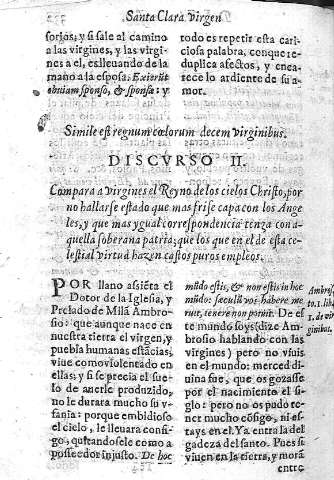 Santa Clara virgen
sorios, y si sale al camino
a las virgines, y las virgi
nes a el, es lleuando de la
mano a la esposa. Exierūt
obuiam sponso, & sponsæ: y
todo es repetir esta cari-
ciosa palabra, conque re-
duplica afectos, y enca-
rece lo ardiente de su a-
mor.
Simile est regnum cœlorum decem virginibus.
DISCVRSO II.
Compara a virgines el Reyno de los cielos Christo, por
no hallarse estado que mas frise capa con los Ange
les, y que mas ygual correspondencia tenga con a-
quella soberana patria; que los que en el de esta ce-
lestial virtud hazen castos puros empleos.
POR llano assiēta el
Dotor de la Iglesia, y
Prelado de Milā Ambro-
sio: que aunque nace en
nuestra tierra el virgen, y
puebla humanas estācias,
viue como violentado en
ellas; y si se precia el sue-
lo de auerle produzido,
no le durara mucho su v-
fania: porque embidioso
el cielo, le lleuara consi-
go, quitandosele como a
posseedor injusto. De hoc
mūdo estis, & non estis in hoc
mūdo: sæculū vos habere me
ruit, tenere non potuit. De es
te mundo soys (dize Ambrosio
hablando con las
virgines) pero no viuis
en el mundo: merced di-
uina fue, que os gozasse
por el nacimiento el si-
glo: pero no os pudo te-
ner mucho cōsigo, ni es-
tays en el. Ya entra la del
gadeza del santo. Pues si
viuen en la tierra, y mora
entre
Ambros.
to. 1. lib.
1. de vir
ginibus.